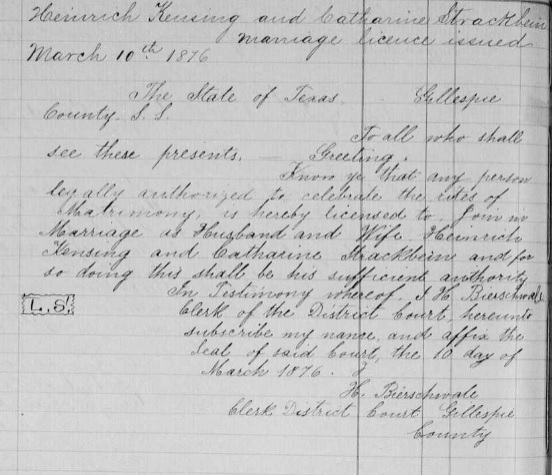 Heinrich Kensing and Catharine Strackbein
marriage licence issued
March 10th 1876
The State of Texas. Gillespie
County. S. S.
To all who shall
see these presents, — Greeting.
Know ye that any person
legally authorized to celebrate the rites of
Matrimony, is hereby licensed to Join in
Marriage as Husband and Wife Heinrich
Kensing and Catharine Strackbein and for
so doing this shall be his sufficient authority
In Testimony whereof, I H. Bierschwale
L. S.
Clerk of the District Court, hereunto
subscribe my name, and affix the
Seal of said Court, the 10 day of
March 1876.
H. Bierschwale
Clerk District Court Gillespie
County